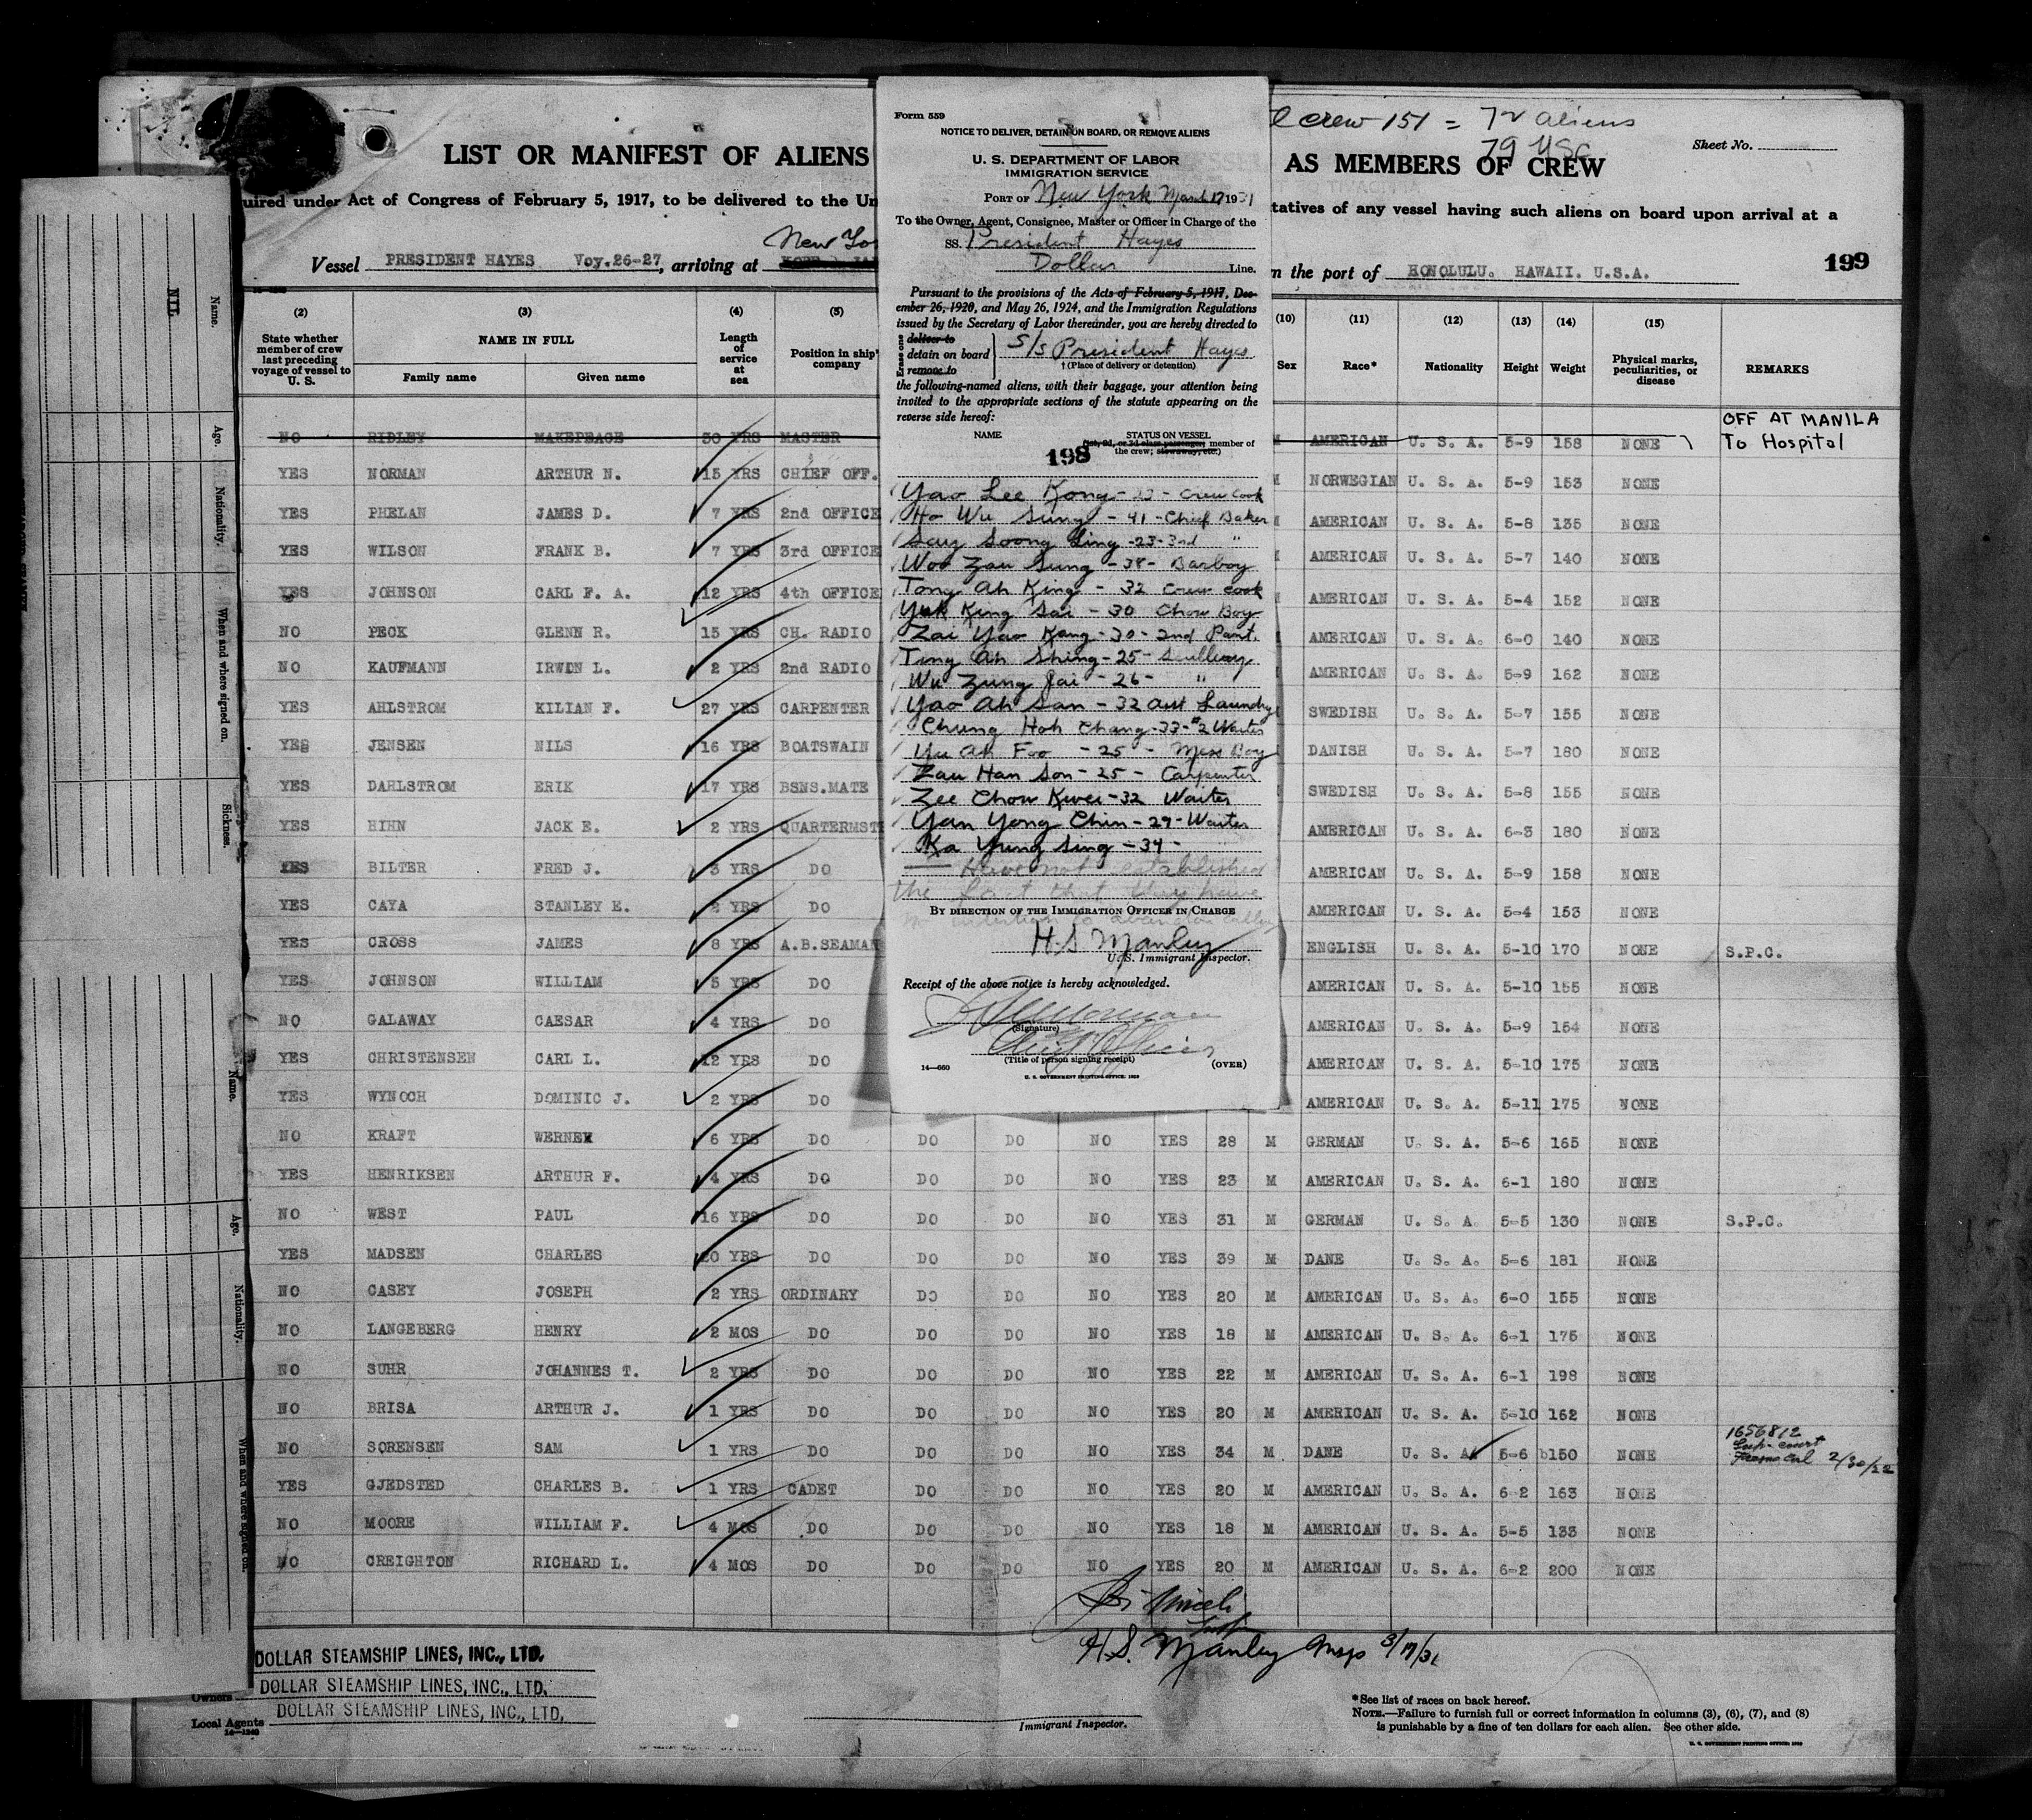 Form 559
NOTICE TO DELIVER, DETAIN ON BOARD, OR REMOVE ALIENS
U. S. DEPARTMENT OF LABOR
IMMIGRATION SERVICE
PORT OF New York March 17 1931
To the Owner, Agent, Consignee, Master or Officer in Charge of the
SS. President Hayes
Dollar Line.
Pursuant to the provisions of the Acts of February 5, 1917, Dec-
ember 26, 1920, and May 26, 1924, and the Immigration Regulations
issued by the Secretary of Labor thereunder, you are hereby directed to
Erase one
deliver to
detain on board S/S President Hayes
remove to † (Place of delivery or detention)
the following-named aliens, with their baggage, your attention being
invited to the appropriate sections of the statute appearing on the
reverse side hereof:
NAME STATUS ON VESSEL
(1st, 2d, or 3d class passenger; member of
the crew; stowaway, etc.)
198
Yao Lee Kong - Crew Cook
Ho Wu Sung - 41 - Chief Baker
Say Soong Ling - 23 - 3rd "
Woo Zau Sung - 38 - Barboy
Tong Ah King - 32 Crew Cook
Yuk King Sai - 30 Chow Boy
Zai Yao Kang - 30 - 2nd Pant.
Ting Ah Shing - 25 - Scullery
Wu Zung Jai - 26 - "
Yao Ah San - 32 Asst Laundry
Chung Hoh Chang - 33 - #2 Waiter
Yu Ah Foo - 25 - Mess Boy
Zau Han Son - 25 - Carpenter
Zee Chow Kwei - 32 Waiter
Yan Yong Chin - 29 - Waiter
Ka Yung Sing - 34 -
Have not established
the fact that they have
no intention to abandon calling
BY DIRECTION OF THE IMMIGRATION OFFICER IN CHARGE
H. S. Manley
U. S. Immigrant Inspector.
Receipt of the above notice is hereby acknowledged.
(Signature)
Chief Officer
(Title of person signing receipt)
14—660 (OVER)
U. S. GOVERNMENT PRINTING OFFICE: 1929
crew 151 = 72 aliens
79 USC
Sheet No.
LIST OR MANIFEST OF ALIENS AS MEMBERS OF CREW
uired under Act of Congress of February 5, 1917, to be delivered to the Un tatives of any vessel having such aliens on board upon arrival at a
New Yo
Vessel PRESIDENT HAYES Voy.26-27, arriving at n the port of HONOLULU. HAWAII. U.S.A.
199
(2) (3) (4) (5) (10) (11) (12) (13) (14) (15)
State whether member of crew last preceding voyage of vessel to U. S. NAME IN FULL Family name Given name Length of service at sea Position in ship' company Sex Race* Nationality Height Weight Physical marks, peculiarities, or disease REMARKS
NO RIDLEY MAKEPEACE 30 YRS MASTER M AMERICAN U. S. A. 5-9 158 NONE OFF AT MANILA To Hospital
YES NORMAN ARTHUR N. 15 YRS CHIEF OFF. M NORWEGIAN U. S. A. 5-9 153 NONE
YES PHELAN JAMES D. 7 YRS 2nd OFFICE AMERICAN U. S. A. 5-8 135 NONE
YES WILSON FRANK B. 7 YRS 3rd OFFICE AMERICAN U. S. A. 5-7 140 NONE
YES JOHNSON CARL F. A. 12 YRS 4th OFFICE AMERICAN U. S. A. 5-4 152 NONE
NO PECK GLENN R. 15 YRS CH. RADIO AMERICAN U. S. A. 6-0 140 NONE
NO KAUFMANN IRWIN L. 2 YRS 2nd RADIO AMERICAN U. S. A. 5-9 162 NONE
YES AHLSTROM KILIAN F. 27 YRS CARPENTER SWEDISH U. S. A. 5-7 155 NONE
YES JENSEN NILS 16 YRS BOATSWAIN DANISH U. S. A. 5-7 180 NONE
YES DAHLSTROM ERIK 17 YRS BSNS.MATE SWEDISH U. S. A. 5-8 155 NONE
YES HIHN JACK E. 2 YRS QUARTERMST AMERICAN U. S. A. 6-3 180 NONE
YES BILTER FRED J. 3 YRS DO AMERICAN U. S. A. 5-9 158 NONE
YES CAYA STANLEY E. 2 YRS DO AMERICAN U. S. A. 5-4 153 NONE
YES CROSS JAMES 8 YRS A.B.SEAMAN ENGLISH U. S. A. 5-10 170 NONE S.P.C.
YES JOHNSON WILLIAM 5 YRS DO AMERICAN U. S. A. 5-10 155 NONE
NO GALAWAY CAESAR 4 YRS DO AMERICAN U. S. A. 5-9 154 NONE
YES CHRISTENSEN CARL L. 12 YRS DO AMERICAN U. S. A. 5-10 175 NONE
YES WYNOCH DOMINIC J. 2 YRS DO AMERICAN U. S. A. 5-11 175 NONE
NO KRAFT WERNER 6 YRS DO DO DO NO YES 28 M GERMAN U. S. A. 5-6 165 NONE
YES HENRIKSEN ARTHUR F. 4 YRS DO DO DO NO YES 23 M AMERICAN U. S. A. 6-1 180 NONE
NO WEST PAUL 16 YRS DO DO DO NO YES 31 M GERMAN U. S. A. 5-5 130 NONE S.P.C.
YES MADSEN CHARLES 20 YRS DO DO DO NO YES 39 M DANE U. S. A. 5-6 181 NONE
NO CASEY JOSEPH 2 YRS ORDINARY DO DO NO YES 20 M AMERICAN U. S. A. 6-0 155 NONE
NO LANGEBERG HENRY 2 MOS DO DO DO NO YES 18 M AMERICAN U. S. A. 6-1 175 NONE
NO SUHR JOHANNES T. 2 YRS DO DO DO NO YES 22 M AMERICAN U. S. A. 6-1 198 NONE
NO BRISA ARTHUR J. 1 YRS DO DO DO NO YES 20 M AMERICAN U. S. A. 5-10 162 NONE
NO SORENSEN SAM 1 YRS DO DO DO NO YES 34 M DANE U. S. A. 5-6 150 NONE 1656812 Sup. court Fresno Cal 2/30/22
YES GJEDSTED CHARLES B. 1 YRS CADET DO DO NO YES 20 M AMERICAN U. S. A. 6-2 163 NONE
NO MOORE WILLIAM F. 4 MOS DO DO DO NO YES 18 M AMERICAN U. S. A. 5-5 133 NONE
NO CREIGHTON RICHARD L. 4 MOS DO DO DO NO YES 20 M AMERICAN U. S. A. 6-2 200 NONE
H. S. Manley Insp 3/17/31
DOLLAR STEAMSHIP LINES, INC., LTD.
Owners DOLLAR STEAMSHIP LINES, INC., LTD.
Local Agents DOLLAR STEAMSHIP LINES, INC., LTD.
14—1240
Immigrant Inspector.
*See list of races on back hereof.
NOTE.—Failure to furnish full or correct information in columns (3), (6), (7), and (8)
is punishable by a fine of ten dollars for each alien. See other side.
U. S. GOVERNMENT PRINTING OFFICE: 1929
Name. Age. Nationality. When and where signed on. Sickness.
NIL
Name. Age. Nationality. When and where signed on.